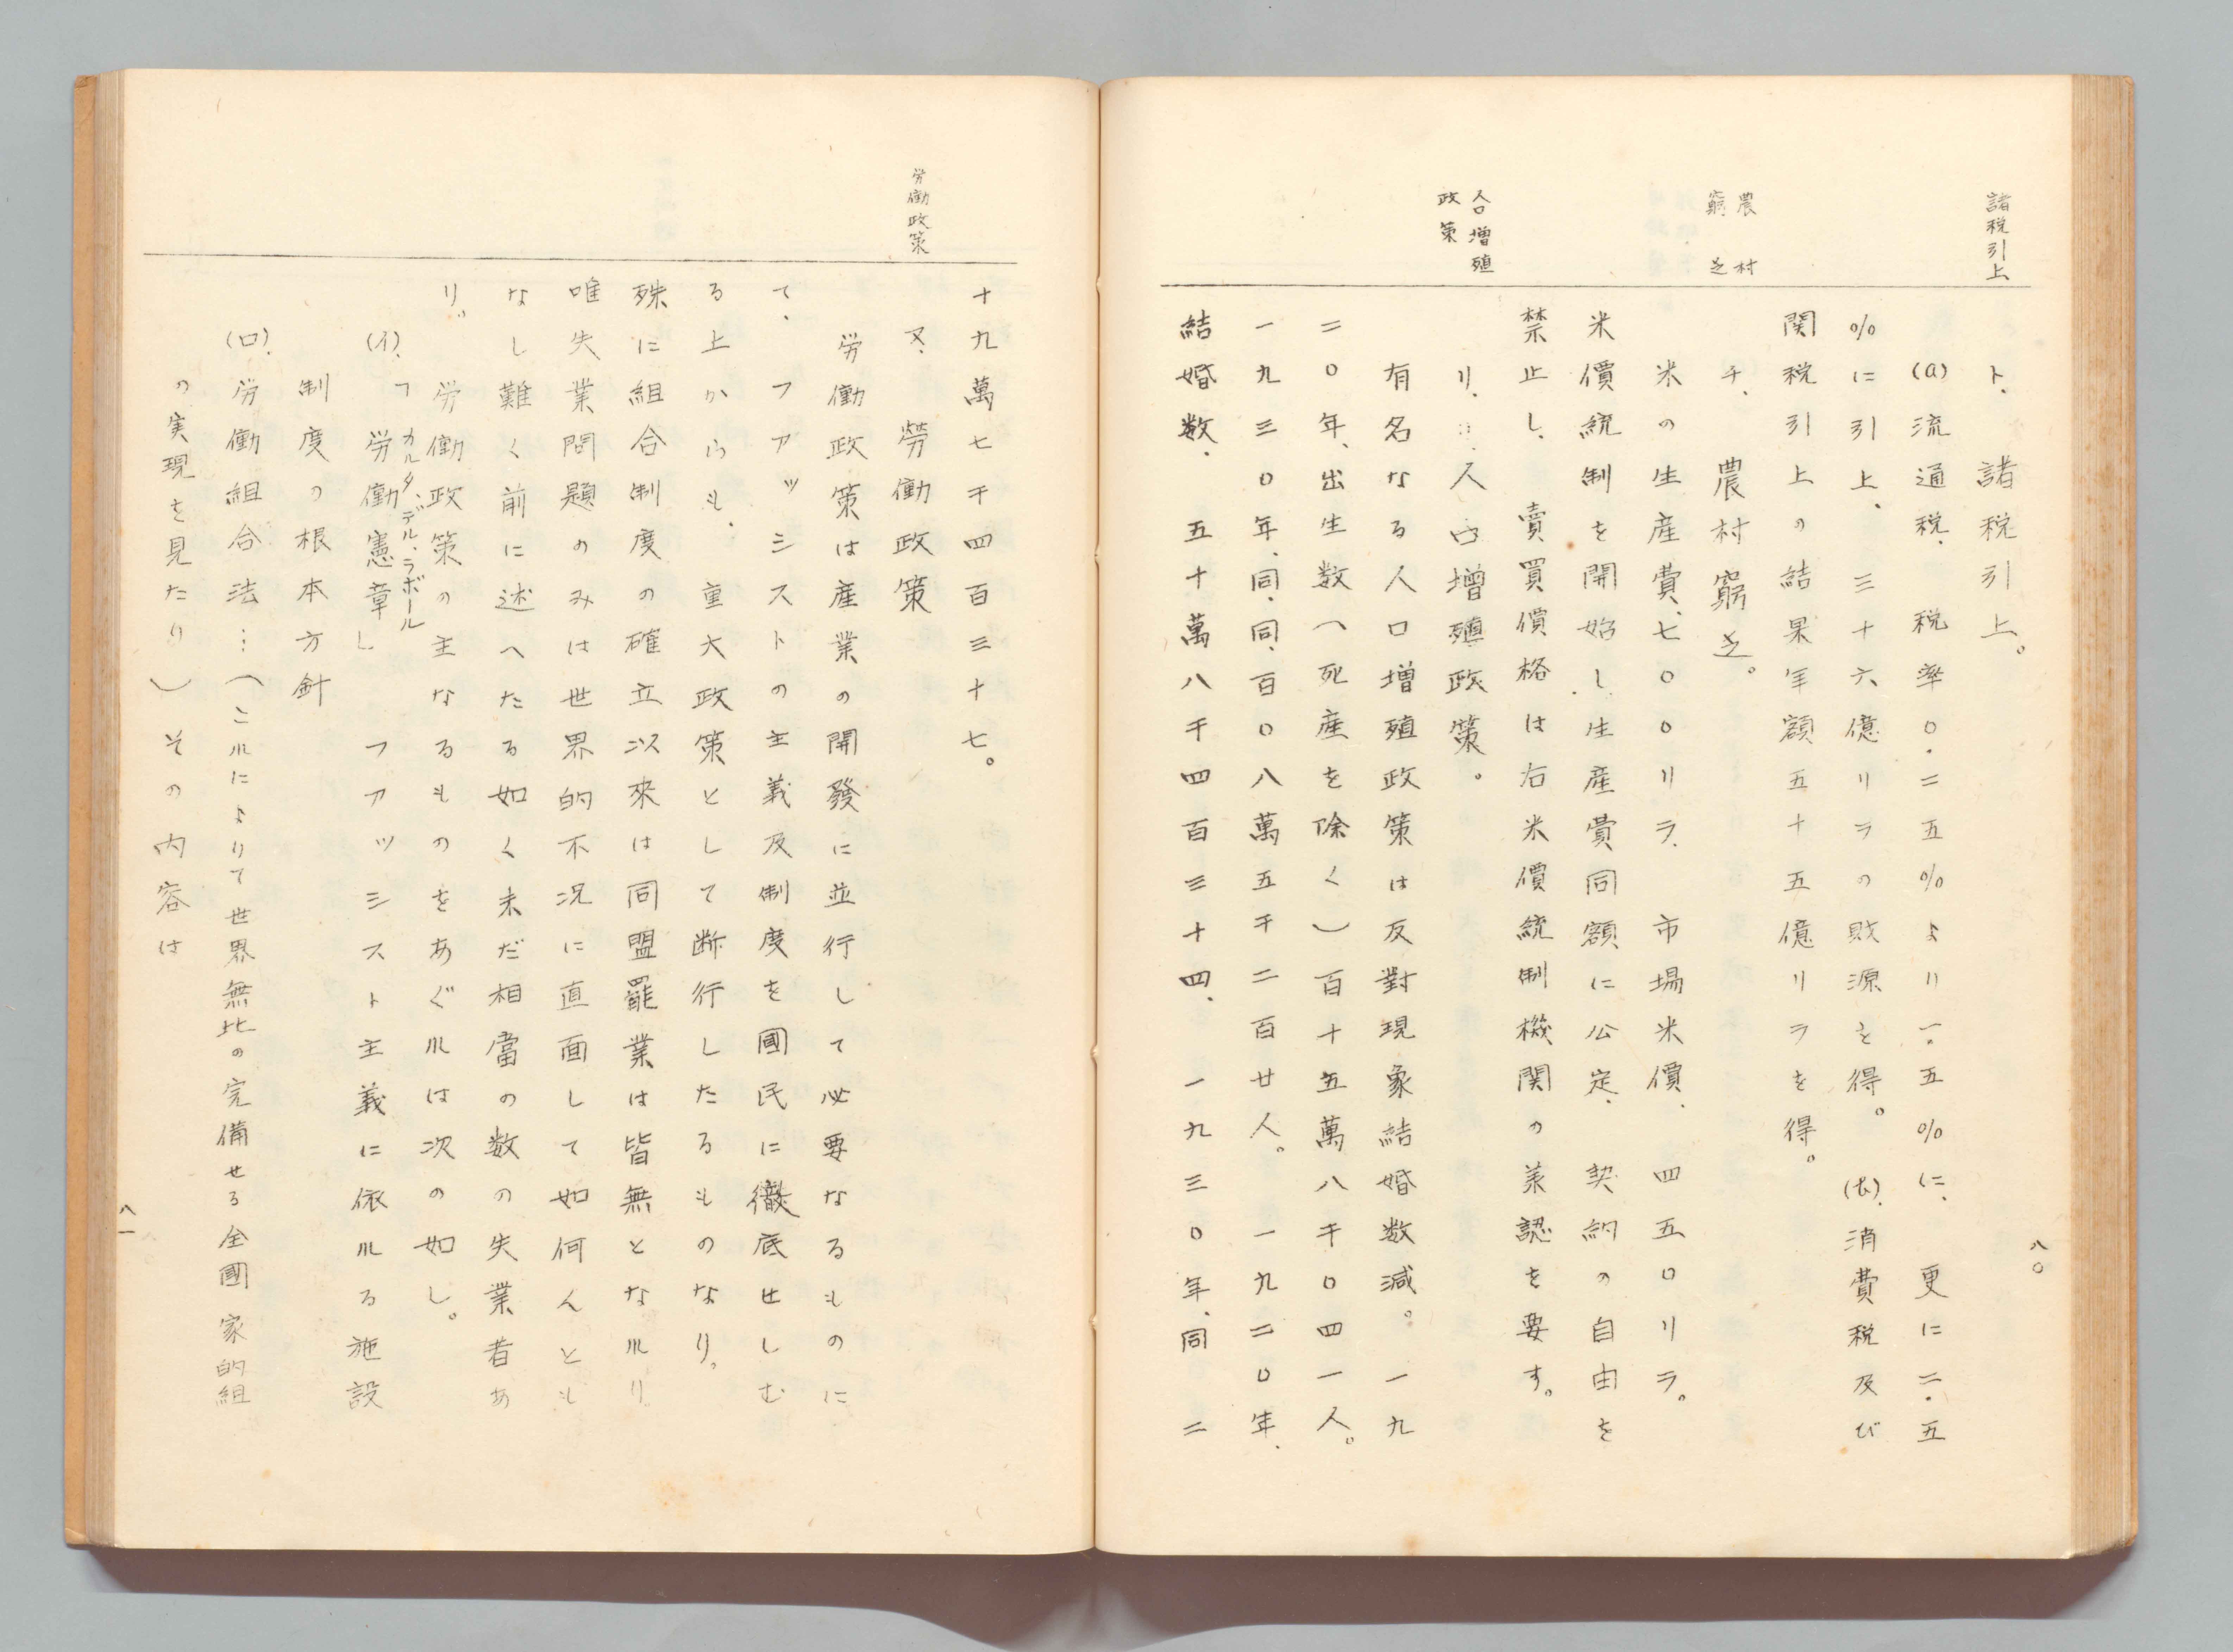 八〇
諸税引上
ト、諸税引上。
(a)流通税、税率〇・二五％より一・五％に、更に二・五
％に引上、三十六億リラの敗源を得。(b)、消費税及び
関税引上の結果年額五十五億リラを得。
農村
窮乏
チ、農村窮乏。
米の生産費、七〇〇リラ、市場米價、四五〇リラ。
米價統制を開始し、生産費同額に公定、契約の自由を
禁止し、賣買價格は右米價統制機関の羕認を要す。
人口増殖
政策
リ、人口増殖政策。
有名なる人口増殖政策は反對現象結婚数減。一九
二〇年、出生数（死産を除く）百十五萬八千〇四一人。
一九三〇年、同、同、百〇八萬五千二百廿人。一九二〇年、
結婚数、五十萬八千四百三十四、一九三〇年、同二
十九萬七千四百三十七。
労働政策
又、勞働政策
労働政策は産業の開發に並行して必要なるものに
て、フアッシストの主義及制度を國民に徹底せしむ
る上からも、重大政策として断行したるものなり。
殊に組合制度の確立以來は同盟罷業は皆無となれり
唯失業問題のみは世界的不況に直面して如何んとも
なし難く前に述へたる如く未だ相當の数の失業者あ
り。労働政策の主なるものをあぐれは次の如し。
カルタ、デル、ラボール
(イ)、「労働憲章」フアッシスト主義に依れる施設
制度の根本方針
(ロ)、労働組合法…（これによりて世界無比の完備せる全國家的組
の実現を見たり）その内容は
八一